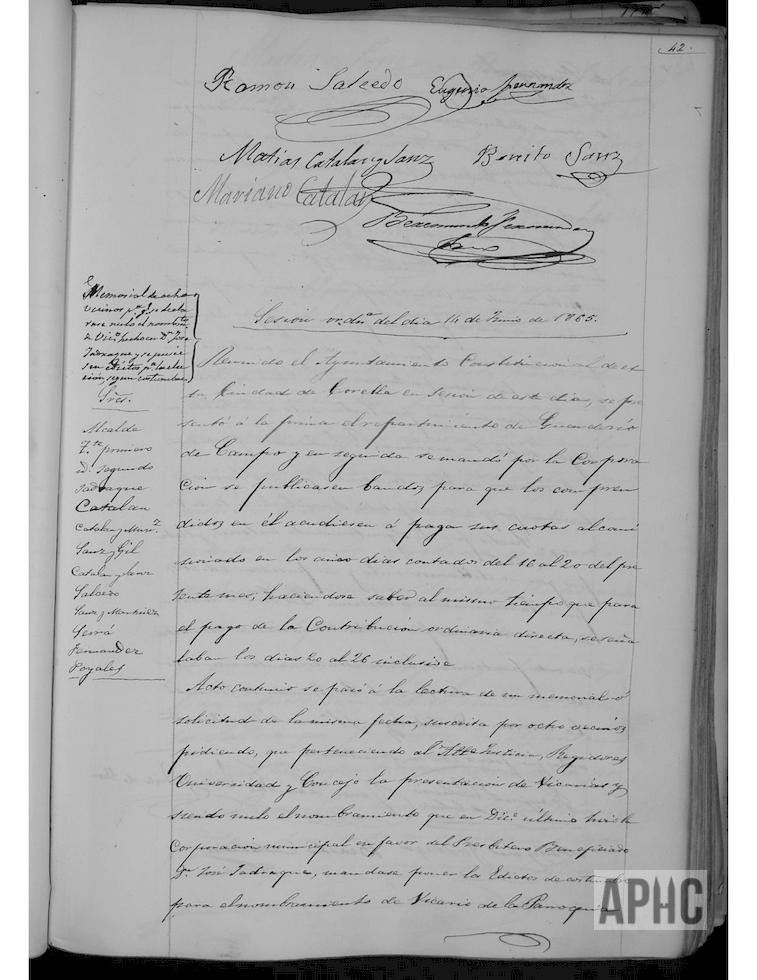 42.
Ramon Salcedo Eugenio Fernandez
Matias Catalan y Sanz Benito Sanz
Mariano Catalan
Bermundo Fernandez
Memorial de ocho
vecinos pa. q. se decla
rase nulo el nombto.
de Vico. hecho en Dn. José
Jadraque y se pusie
sen Edictos pa. la elec
ción segun costumbre
Sres.
Alcalde
Tte. primero
id. segundo
Jadraque
Catalan
Catalan y Marz.
Sanz y Gil
Catalan y Sanz
Salcedo
Sanz y Martinez
Serrá
Fernandez
Poyales
Sesion ordna. del dia 14 de Junio de 1865.
Reunido el Ayuntamiento Constitucional de es
ta Ciudad de Corella en sesion de este dia, se pre
sentó á la firma el repartimiento de Guarderio
de Campo y en seguida se mandó por la Corpora
cion se publicasen bandos para que los compren
didos en él acudiesen á pagar sus cuotas al comi
sionado en los cinco dias contados del 16 al 20 del pre
sente mes; haciendose saber al mismo tiempo que para
el pago de la Contribucion ordinaria directa, se seña
laban los dias 20 al 26 inclusive
Acto continuo se pasó á la lectura de un memorial ó
solicitud de la misma fecha, suscrita por ocho vecinos
pidiendo, que perteneciendo al Alle. Justicia, Regidores
Universidad y Concejo la presentacion de Vicarias y
siendo nulo el nombramiento que en Dice. último hizo la
Corporacion municipal en favor del Presbitero Beneficiado
Dn. José Jadraque, mandase poner los Edictos de costumbre
para el nombramiento de Vicario de la Parroquia
APHC